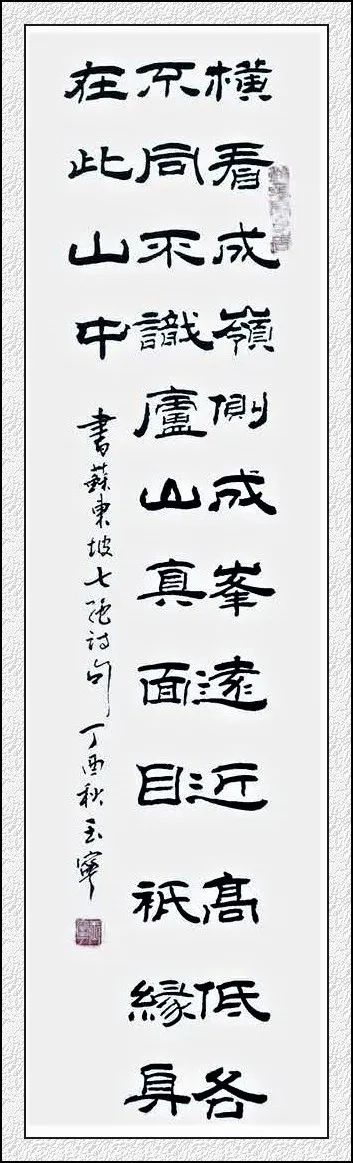 橫看成嶺側成峯遠近髙低各
不同不識廬山真面目衹緣身
在此山中
書蘇東坡七絕詩句丁酉秋玉寧